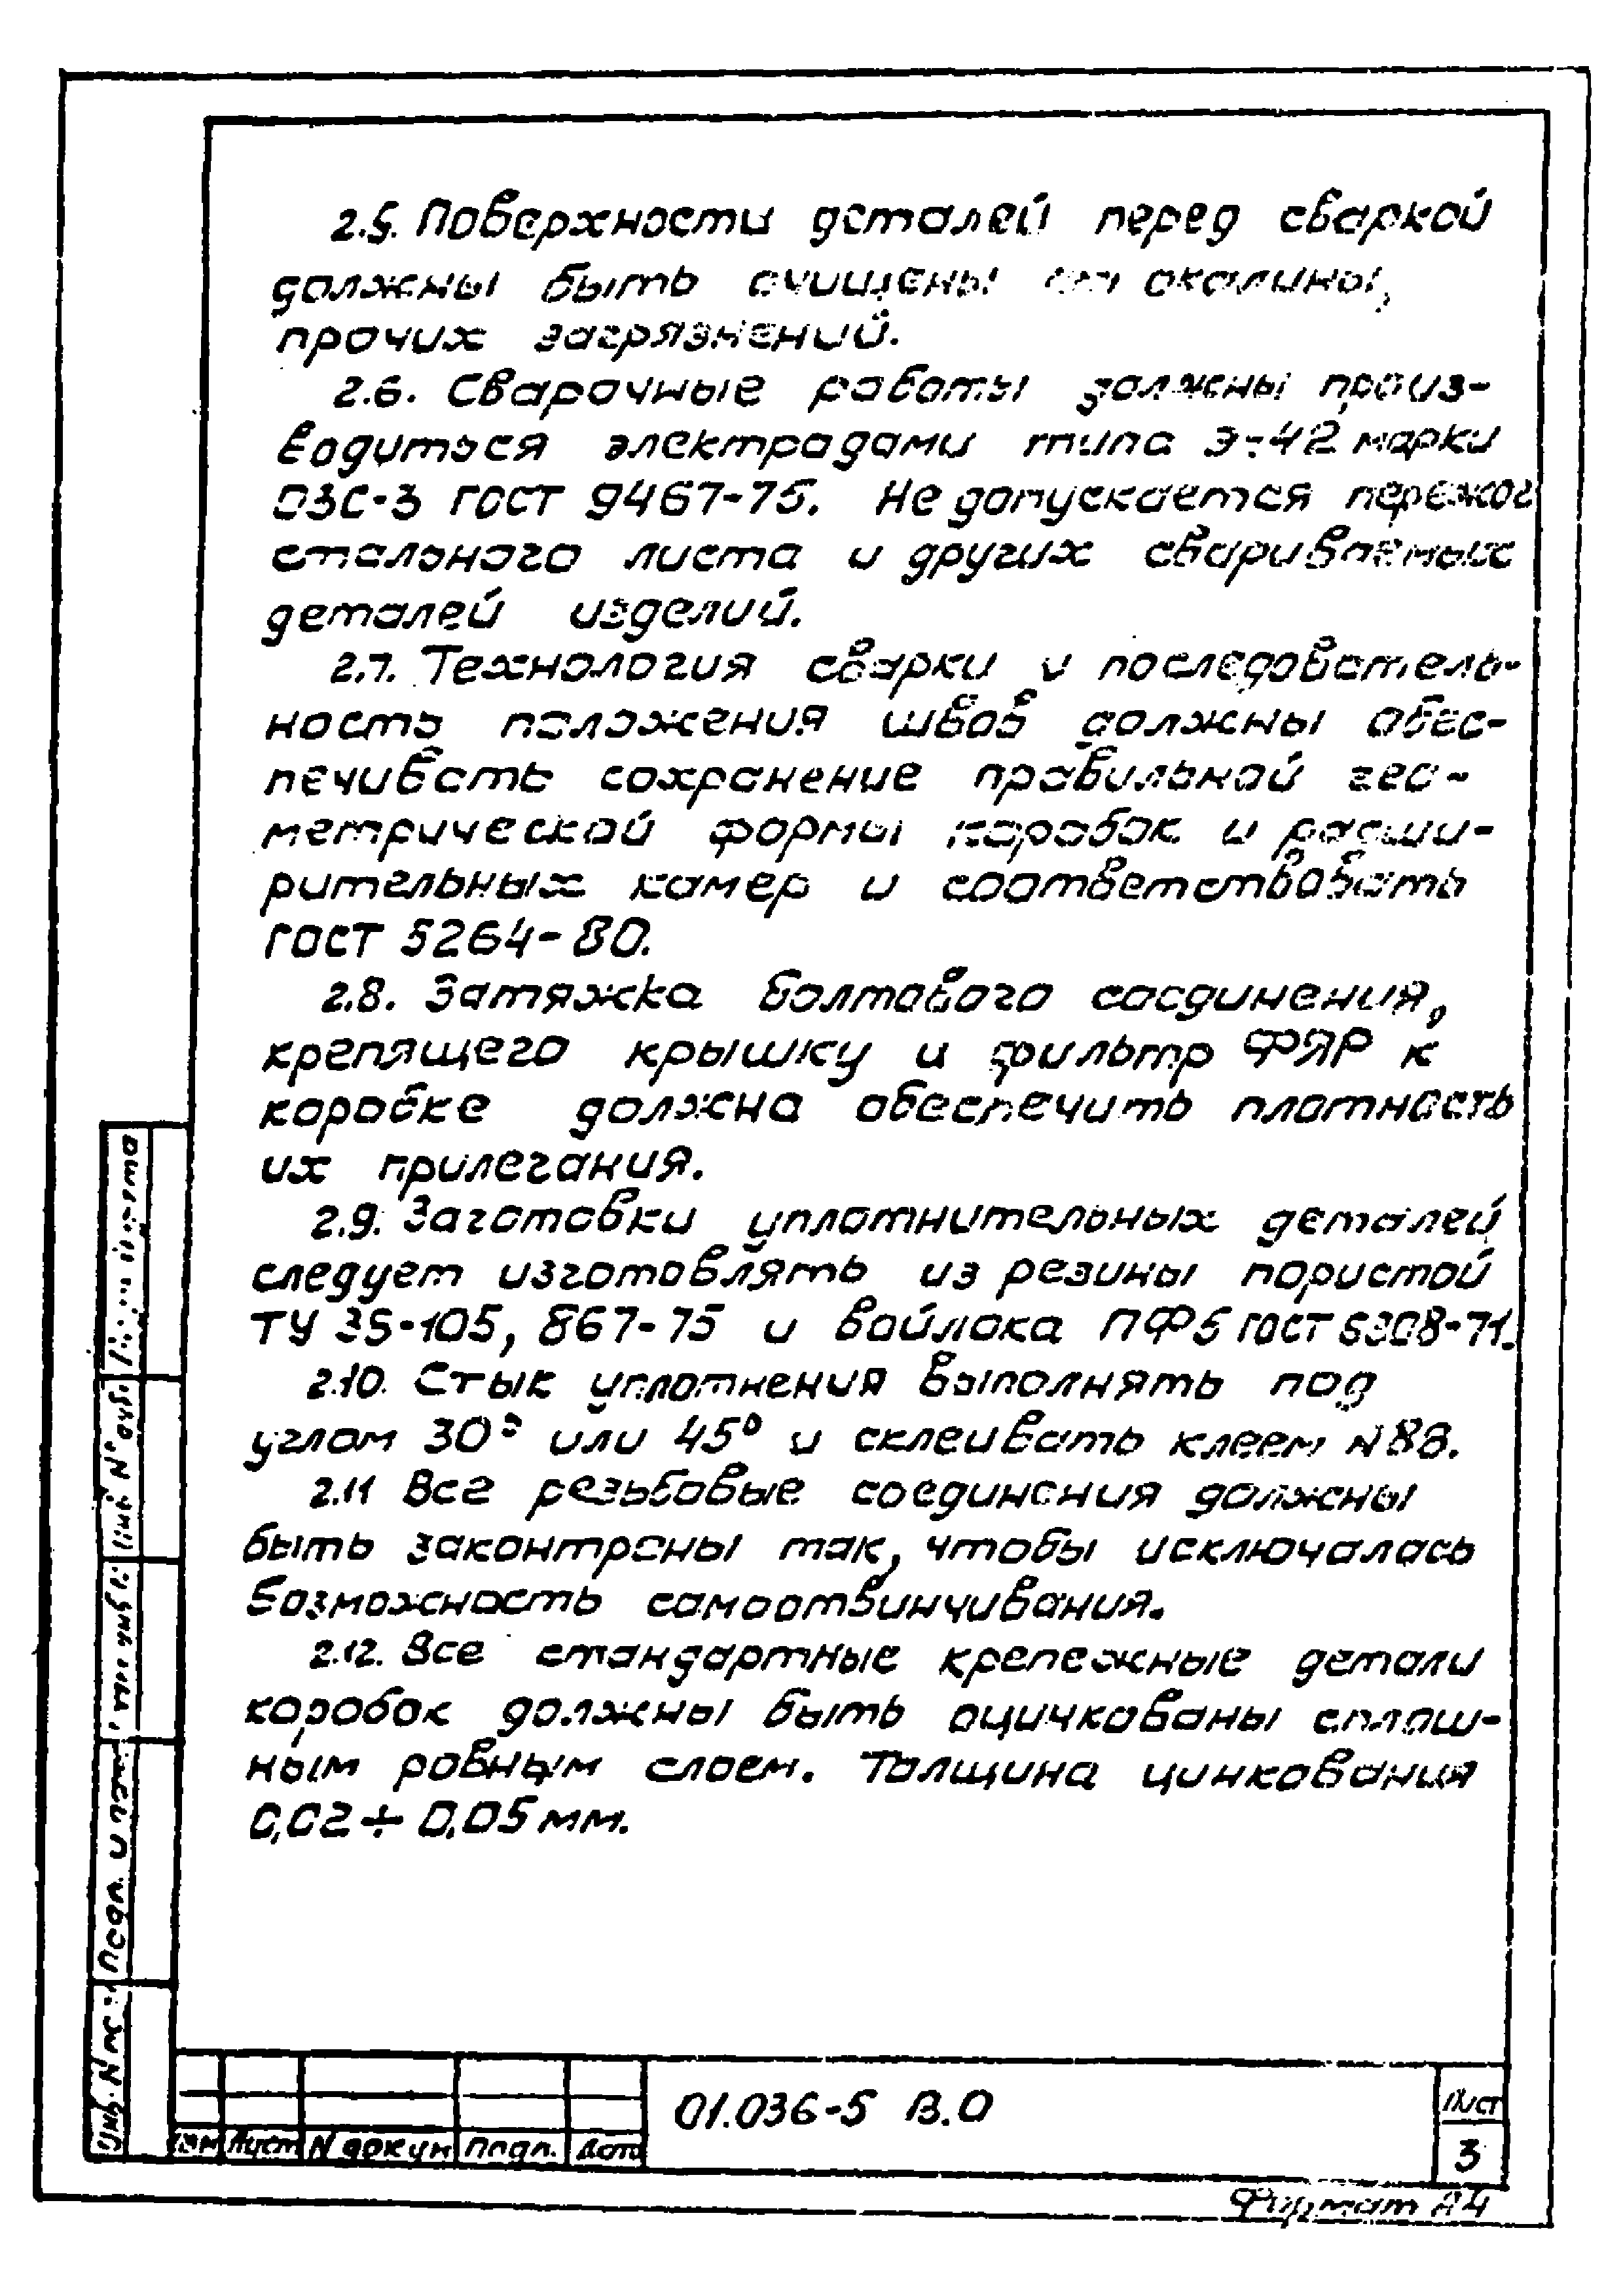 2.5. Поверхности деталей перед сваркой
должны быть очищены от окалины,
прочих загрязнений.
2.6. Сварочные работы должны произ-
водиться электродами типа Э-42 марки
ОЗС-3 ГОСТ 9467-75. Не допускается пережог
стального листа и других свариваемых
деталей изделий.
2.7. Технология сварки и последователь-
ность положения швов должны обес-
печивать сохранение правильной гео-
метрической формы коробок и расши-
рительных камер и соответствовать
ГОСТ 5264-80.
2.8. Затяжка болтового соединения,
крепящего крышку и фильтр ФЯР к
коробке должна обеспечить плотность
их прилегания.
2.9. Заготовки уплотнительных деталей
следует изготовлять из резины пористой
ТУ 35-105, 867-75 и войлока ПФ5 ГОСТ 6308-71.
2.10. Стык уплотнения выполнять под
углом 30° или 45° и склеивать клеем N88.
2.11 Все резьбовые соединения должны
быть законтрены так, чтобы исключалась
возможность самоотвинчивания.
2.12. Все стандартные крепежные детали
коробок должны быть оцинкованы сплош-
ным ровным слоем. Толщина цинкования
0,02 ÷ 0,05 мм.
Инв. N
Подп. и
Инв. N° дубл.
01.036-5 В.О
Лист
3
Изм Лист N докум Подп. Дата
Формат А4